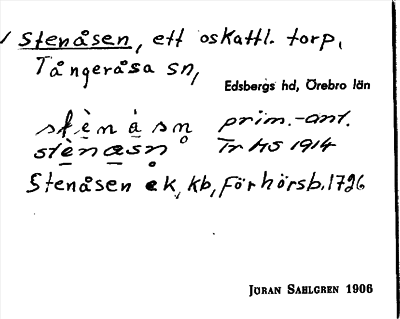 Stenåsen, ett oskattl. torp,
Tångeråsa sn,
Edsbergs hd, Örebro län
stènåsn prim.-ant.
stènåsn Tr HS 1914
Stenåsen ek, kb, Förhörsb. 1726
JÖRAN SAHLGREN 1906